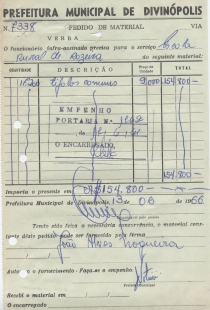 PREFEITURA MUNICIPAL DE DIVINÓPOLIS
N.º 7338 PEDIDO DE MATERIAL VIA
VERBA
O funcionário infra-assinado precisa para o serviço Escola
Rural de do seguinte material:
QUANTIDADE DESCRIÇÃO Preço da Unidade TOTAL
tijolos comuns 154.800
EMPENHO
PORTARIA Nº
O ENCARREGADO,
154.800
Importa o presente em Cr$ 154.800
Prefeitura Municipal de Divinópolis, 13 de 06 de 1966
Tendo sido feita a necessária concorrência, o material constante dêste pedido deve ser fornecido pela firma
João Alves Nogueira
Autorizo o fornecimento - Faça-se o empenho
Prefeito Municipal
Recebi o material em
O encarregado